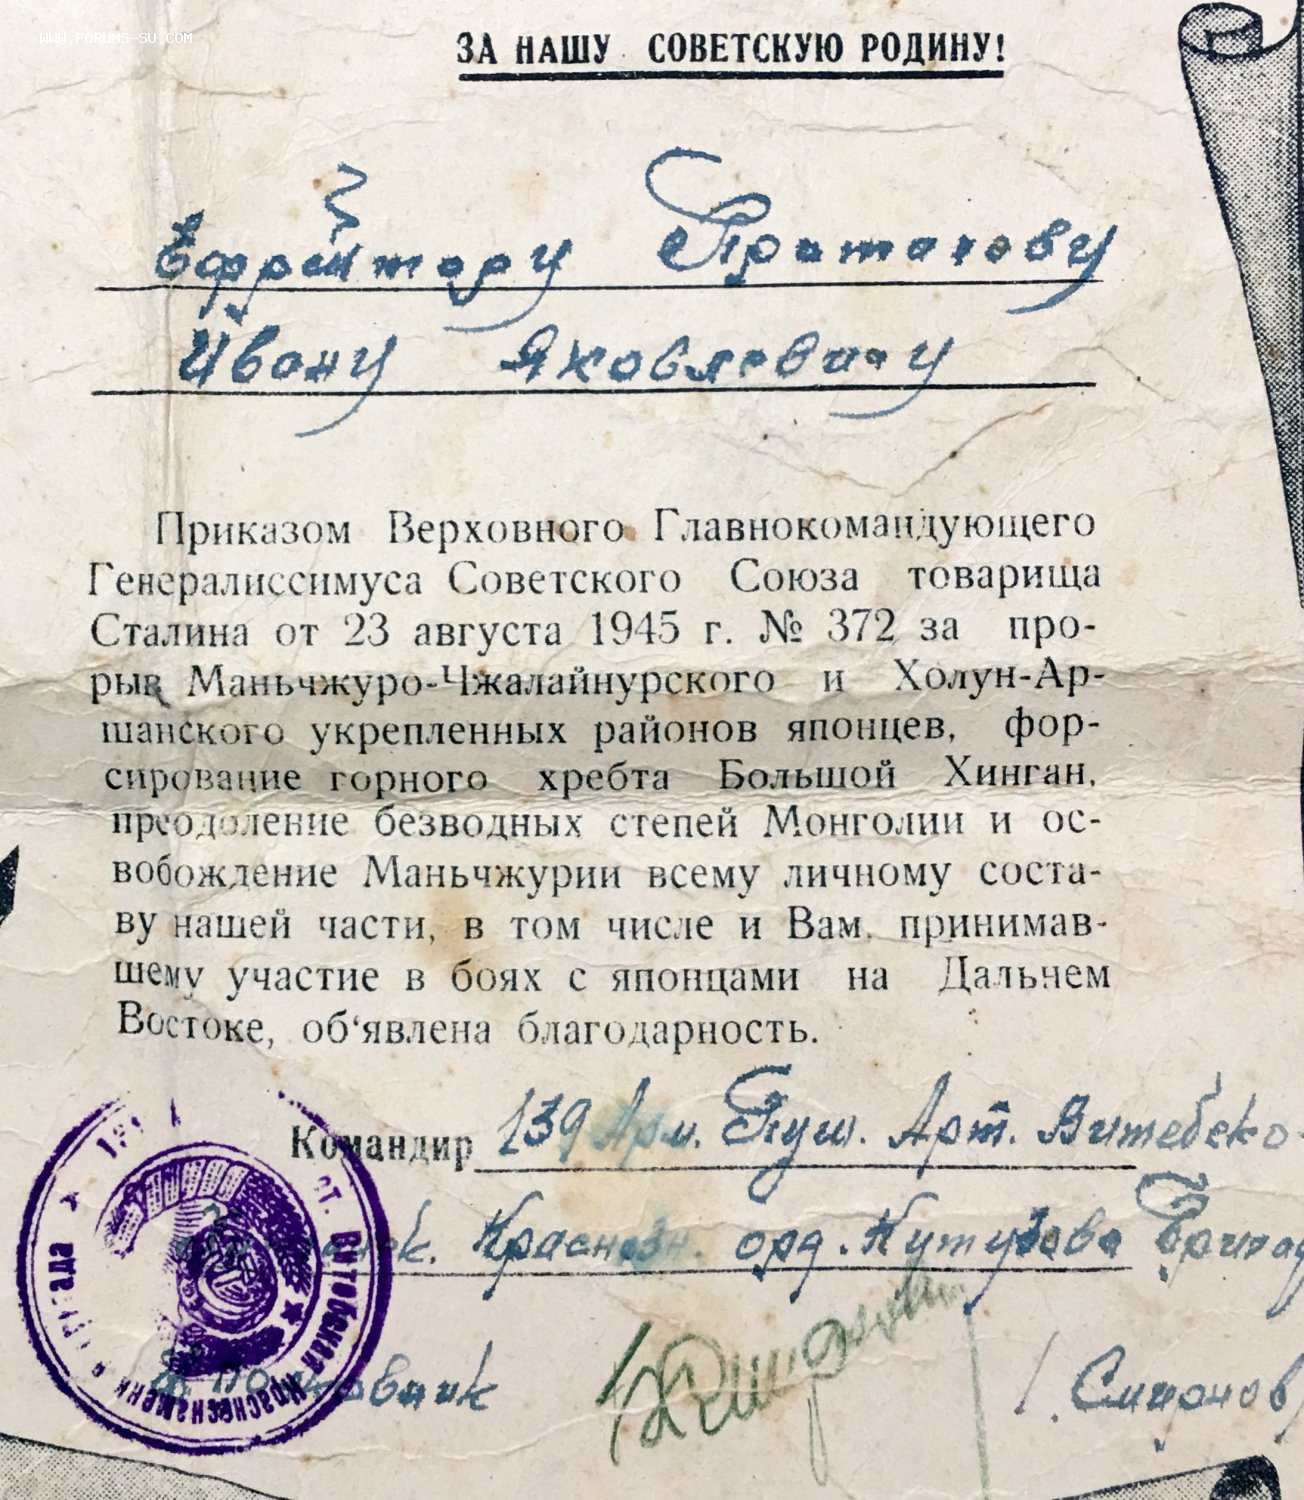 WWW.FORUMS-SU.COM
ЗА НАШУ СОВЕТСКУЮ РОДИНУ!
Ефрейтору
Ивану Яковлевичу
Приказом Верховного Главнокомандующего
Генералиссимуса Советского Союза товарища
Сталина от 23 августа 1945 г. № 372 за про-
рыв Маньчжуро-Чжалайнурского и Холун-Ар-
шанского укрепленных районов японцев, фор-
сирование горного хребта Большой Хинган,
преодоление безводных степей Монголии и ос-
вобождение Маньчжурии всему личному соста-
ву нашей части, в том числе и Вам, принимав-
шему участие в боях с японцами на Дальнем
Востоке, об‘явлена благодарность.
Командир 139 Арм. Пуш. Арт. Витебско-
Краснозн. орд. Кутузова Бригад
Витебская Краснознаменн
Полковник / Смирнов /